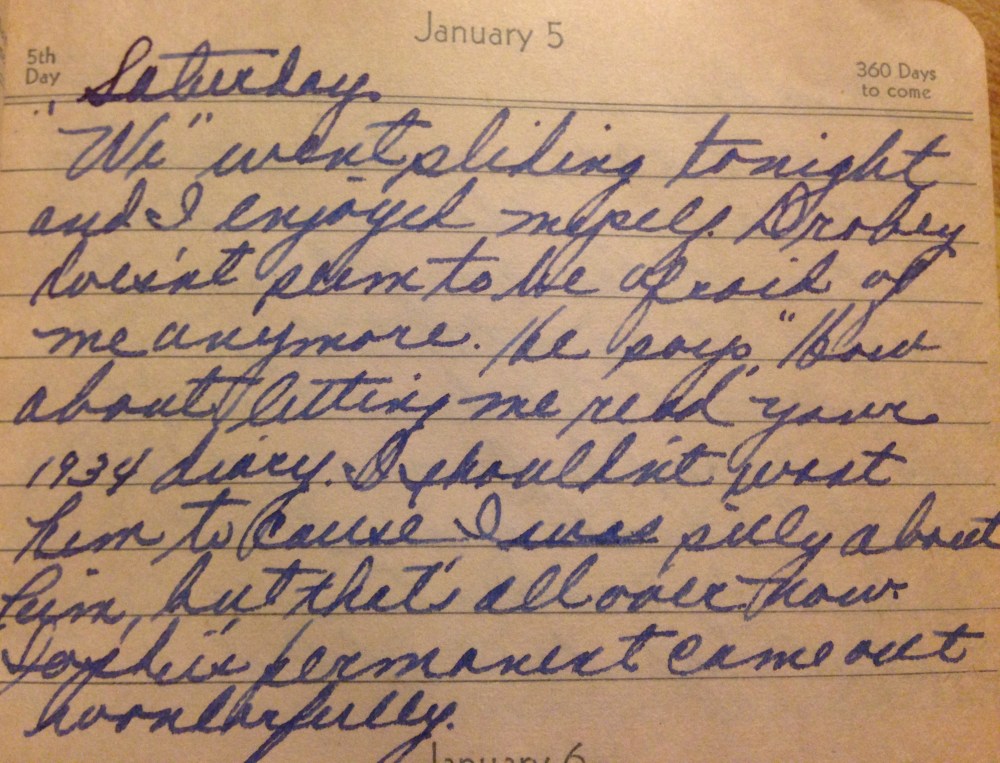 January 5
5th
Day
360 Days
to come
Saturday
"We" went sliding tonight
and I enjoyed myself. Drobey
doesn't seem to be afraid of
me anymore. He says "How
about letting me read your
1934 diary. I shouldn't want
him to cause I was silly about
him, but that's all over now.
Sophie's permanent came out
wonderfully.
January 6